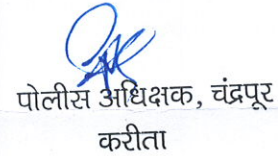 पोलीस अधिक्षक, चंद्रपूर
करीता